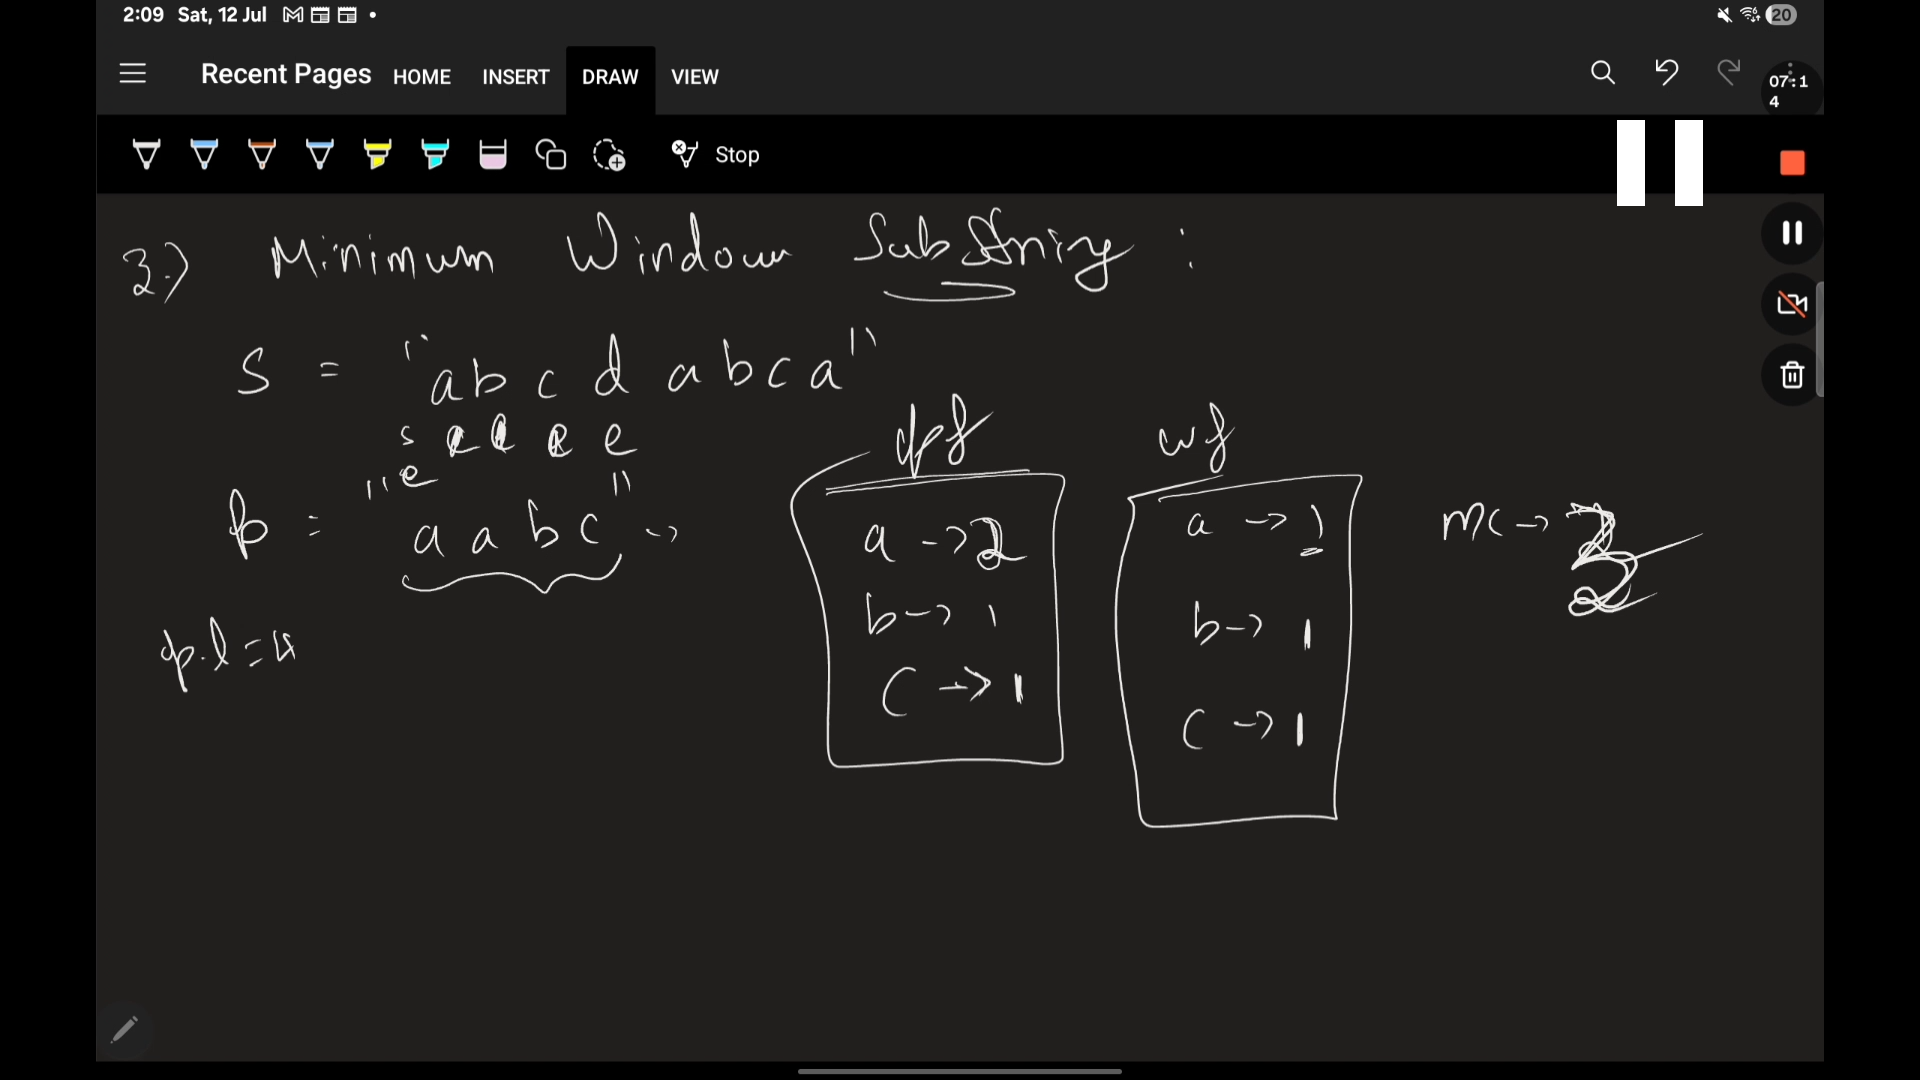 2:09 Sat, 12 Jul
20
Recent Pages HOME INSERT DRAW VIEW
07:1
4
Stop
3.) Minimum Window Substring :
S = "abcdabca"
s e e e e
e
p = "aabc" ->
p.l = 4
pf
a -> 2
b -> 1
c -> 1
wf
a -> 1
b -> 1
c -> 1
mc ->